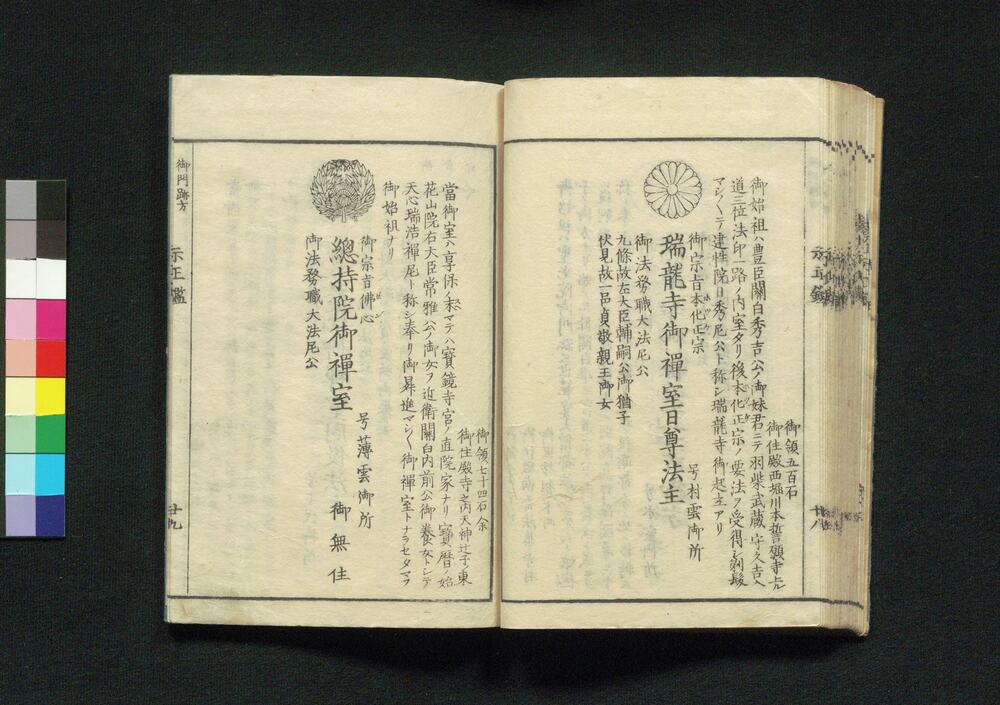 御領五百石
御住殿西堀川本誓願寺上ル
御始祖ハ豊臣關白秀吉公ノ御妹君ニテ羽柴武蔵守久吉入
道三位法印一路ノ内室タリ後本化正宗ノ要法ヲ受得シ剃髪
マシ〳〵テ建性院日秀尼公ト称シ瑞龍寺御起立アリ
御宗旨本化正宗
瑞龍寺御禪室日尊法主
号村雲御所
御法務職大法尼公
九條故左大臣輔嗣公御猶子
伏見故一品貞敬親王御女
廿八
御領七十四石余
御住殿寺之内天神辻子ノ東
當御室ハ享保ノ末マテハ寶鏡寺宮ノ直院家ナリ寶暦ノ始
花山院右大臣常雅公ノ御女ヲ近衛關白内前公御養女トシテ
天心瑞浩禪尼ト称シ奉リ御昇進マシ〳〵御禪室トナラセタマフ
御始祖ナリ
御宗旨佛心
總持院御禪室
号薄雲御所
御無住
御法務職大法尼公
御門跡方
廿九